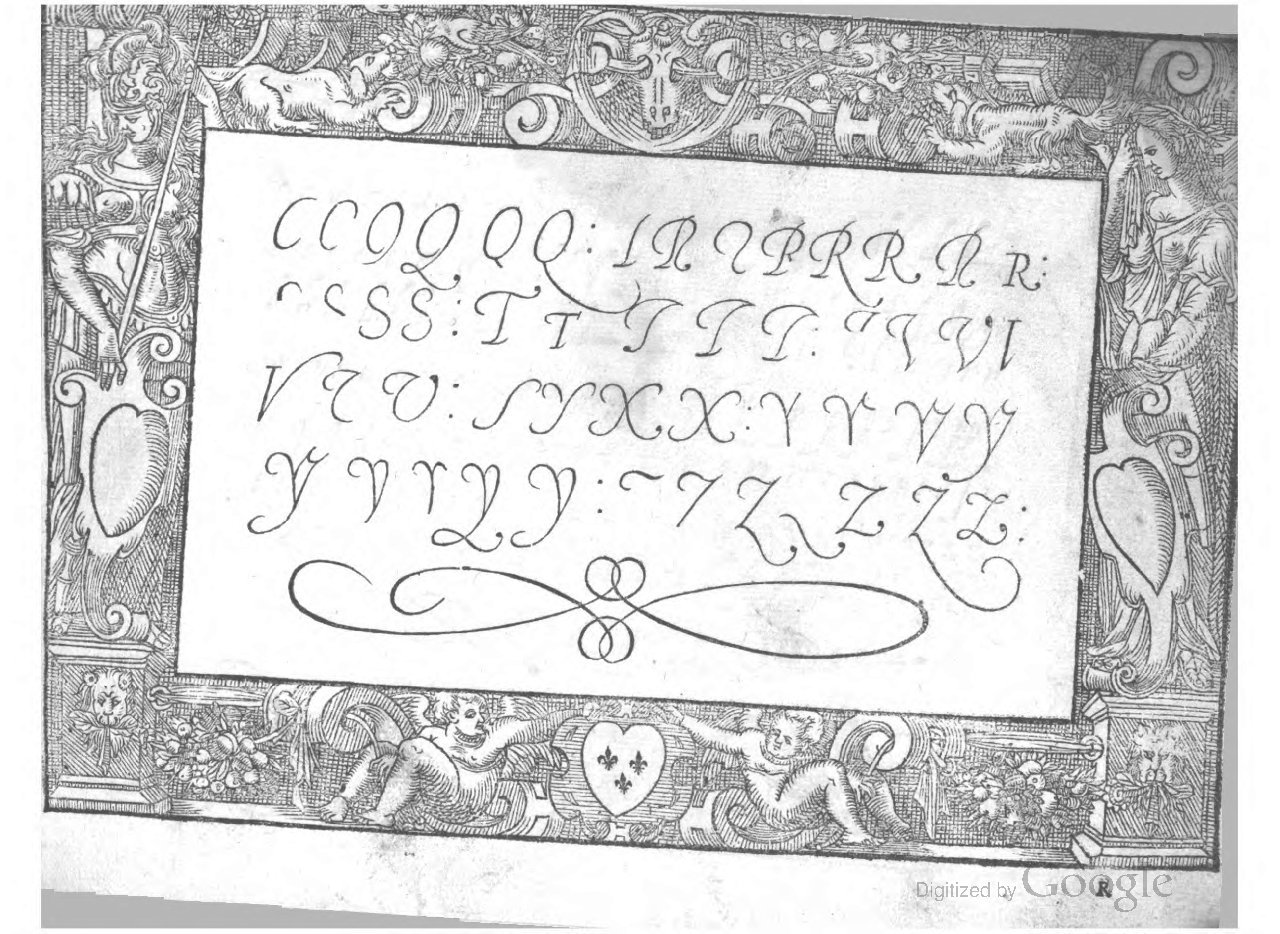 C C Q Q Q Q : I R Z P R R R R :
S S : T T T T T : V V I
V V V : S Y X X : Y Y Y Y
Y Y Y Y Y : ~ 7 Z Z Z Z :
R
Digitized by Google